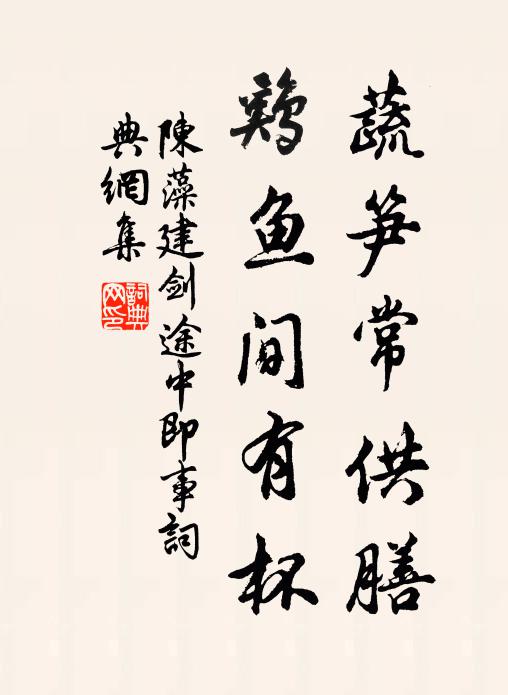 蔬笋常供膳
鸡鱼间有杯
陳藻建剑途中即事詞
典網集
詞典网印